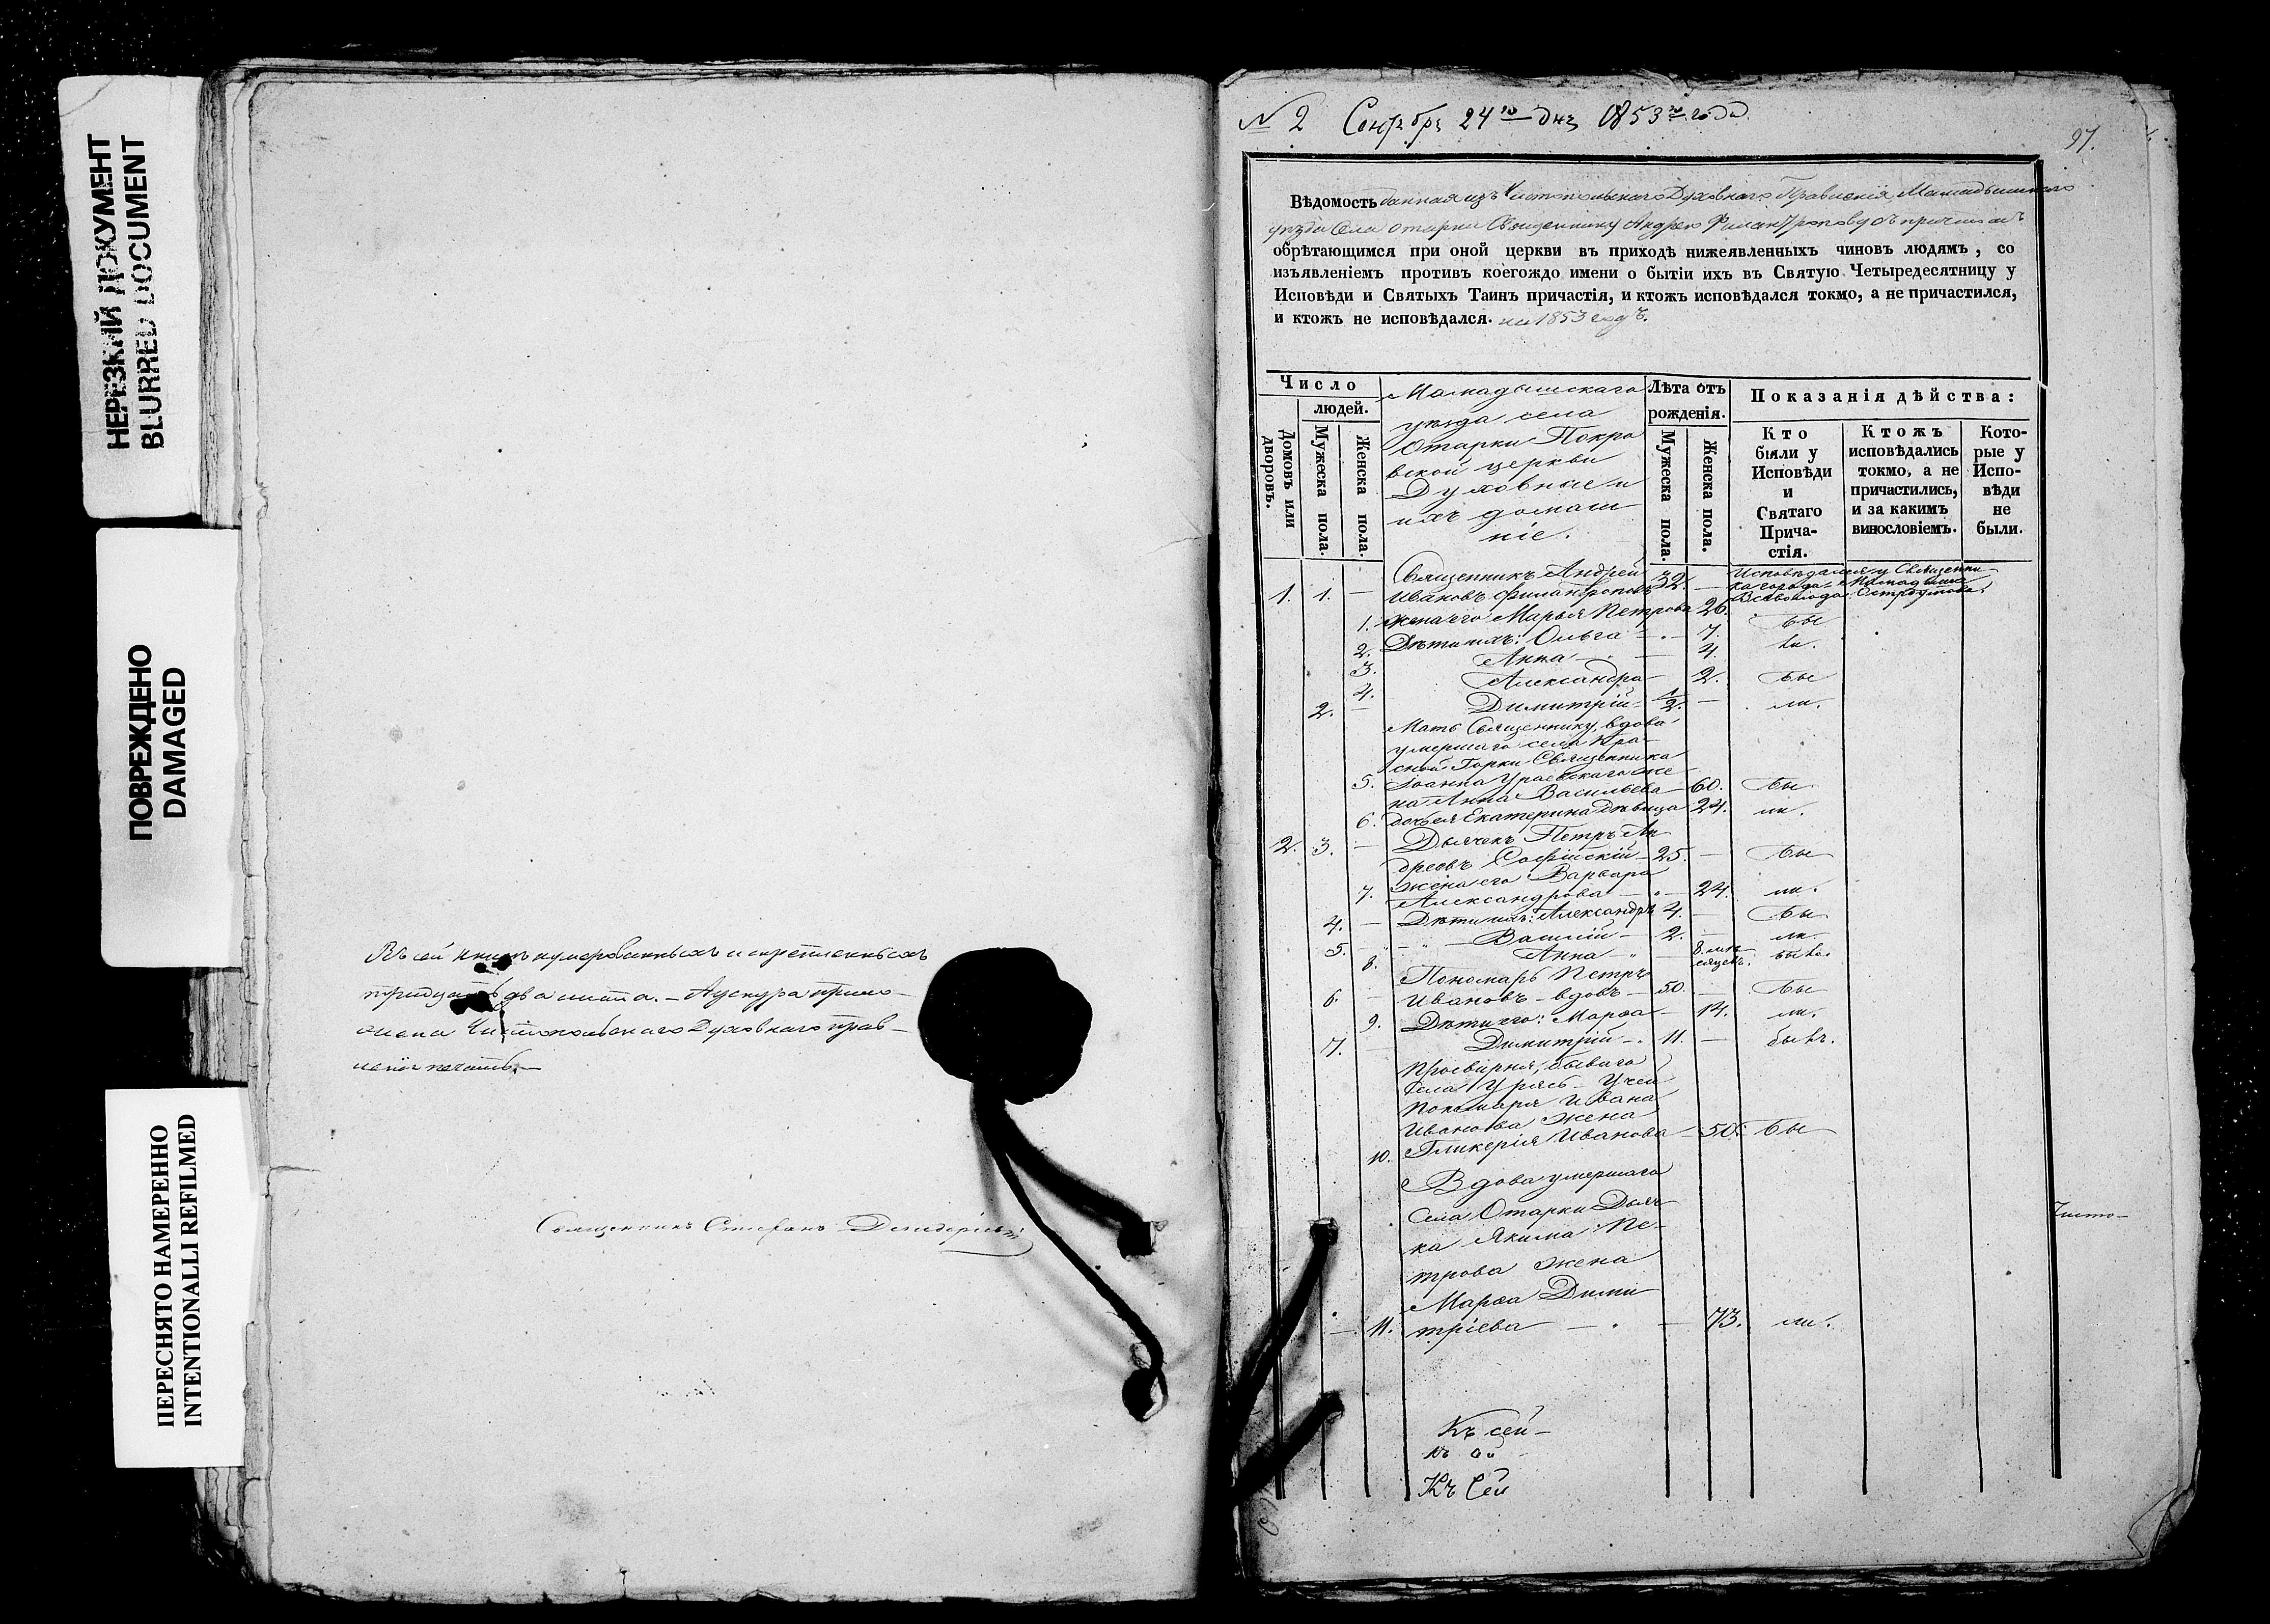 НЕРЕЗКИЙ ДОКУМЕНТ
BLURRED DOCUMENT
ПОВРЕЖДЕНО
DAMAGED
ПЕРЕСНЯТО НАМЕРЕННО
INTENTIONALLI REFILMED
Въ сей книгѣ нумерованныхъ и скрѣпленныхъ
тридцать два листа. – Аускура прило-
жена Чистопольскаго Духовнаго прав-
ленія печать. –
Священникъ Стефанъ
№ 2 Сентябр 24го дня 1853го года
97.
Вѣдомость данная изъ Чистопольскаго Духовнаго Правленія Мамадышскаго
уѣзда Села Отарки Священнику Андрею Филантропову съ причтомъ
обрѣтающимся при оной церкви въ приходѣ нижеявленныхъ чиновъ людямъ, со
изъявленіемъ противъ коегождо имени о бытіи ихъ въ Святую Четыредесятницу у
Исповѣди и Святыхъ Таинъ причастія, и ктожъ исповѣдался токмо, а не причастился,
и ктожъ не исповѣдался. на 1853 годъ.
Число
людей.
Домовъ или дворовъ.
Мужеска пола.
Женска пола.
Мамадышскаго
уѣзда села
Отарки Покро
вской церкви
Духовные и
ихъ домаш
ніе.
Лѣта отъ
рожденія.
Мужеска пола.
Женска пола.
Показанія дѣйства:
Кто
были у
Исповѣди
и
Святаго
Прича-
стія.
Ктожъ
исповѣдались
токмо, а не
причастились,
и за какимъ
винословіемъ.
Кото-
рые у
Испо-
вѣди
не
были.
Священникъ Андрей 32. Исповѣдался у Священни-
1. 1. — Ивановъ Филантроповъ — ка города Мамадыша
Всеволода Остроумова.
1. Жена его Марья Петрова 26. бы
2. Дѣти ихъ: Ольга — 7. ли.
3. Анна — 4.
4. Александра — 2. бы
2. — Димитрій — 1/2. — ли.
Мать Священнику, вдова
умершаго села Кра-
сной Горки Священника
5. Іоанна Ураевскаго же
на Анна Васильева — 60. бы
6. дочь ея Екатерина дѣвица 24. ли.
2. 3. — Дьячекъ Петръ Ан
дреевъ Софійскій — 25. — бы
7. жена его Варвара
Александрова — 24. ли.
4. — Дѣти ихъ: Александръ 4. — бы
5. — Василій — 2. — ли.
8. Анна — 8. мѣ-
сяцевъ. была.
Пономарь Петръ
6. — Ивановъ – вдовъ — 50. — бы
9. Дѣти его: Марѳа — 14. ли.
7. — Димитрій — 11. — былъ.
Просвирня, бываго
села Урясь – Учей
пономаря Ивана
Иванова жена
10. Гликерія Иванова — 50. бы
Вдова умершаго
села Отарки Дьяч
ка Якима Пе-
трова жена
Марѳа Дими
11. тріева — 73. ли.
Къ сей –
Къ сей
Чисто-